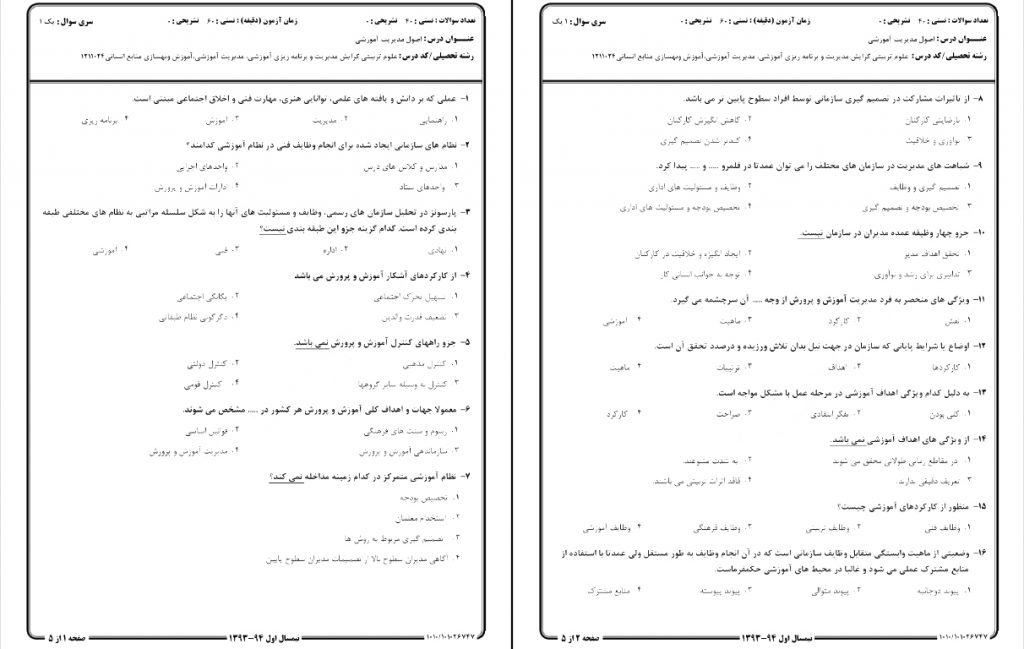 تعداد سوالات : تستی : ۴۰ تشریحی : ۰
زمان آزمون (دقیقه) : تستی : ۶۰ تشریحی : ۰
سری سوال : ۱ یک
عنـــوان درس : اصول مدیریت آموزشی
رشته تحصیلی/کد درس : علوم تربیتی گرایش مدیریت و برنامه ریزی آموزشی، مدیریت آموزشی،آموزش وبهسازی منابع انسانی ۱۲۱۱۰۲۴
۱- عملی که بر دانش و یافته های علمی، توانایی هنری، مهارت فنی و اخلاق اجتماعی مبتنی است.
۱. راهنمایی ۲. مدیریت ۳. آموزش ۴. برنامه ریزی
۲- نظام های سازمانی ایجاد شده برای انجام وظایف فنی در نظام آموزشی کدامند؟
۱. مدارس و کلاس های درس ۲. واحدهای اجرایی
۳. واحدهای ستاد ۴. ادارات آموزش و پرورش
۳- پارسونز در تحلیل سازمان های رسمی، وظایف و مسئولیت های آنها را به شکل سلسله مراتبی به نظام های مختلفی طبقه
بندی کرده است. کدام گزینه جزو این طبقه بندی نیست؟
۱. نهادی ۲. اداره ۳. فنی ۴. آموزشی
۴- از کارکردهای آشکار آموزش و پرورش می باشد
۱. تسهیل تحرک اجتماعی ۲. یگانگی اجتماعی
۳. تضعیف قدرت والدین ۴. دگرگونی نظام طبقاتی
۵- جزو راههای کنترل آموزش و پرورش نمی باشد.
۱. کنترل مذهبی ۲. کنترل دولتی
۳. کنترل به وسیله سایر گروهها ۴. کنترل قومی
۶- معمولا جهات و اهداف کلی آموزش و پرورش هر کشور در ..... مشخص می شوند.
۱. رسوم و سنت های فرهنگی ۲. قوانین اساسی
۳. سازماندهی آموزش و پرورش ۴. مدیریت آموزش و پرورش
۷- نظام آموزشی متمرکز در کدام زمینه مداخله نمی کند؟
۱. تخصیص بودجه
۲. استخدام معلمان
۳. تصمیم گیری مربوط به روش ها
۴. آگاهی مدیران سطوح بالا از تصمیمات مدیران سطوح پایین
صفحه ۱ از ۵
نیمسال اول ۹۴-۱۳۹۳
۱۰۱۰/۱۰۱۰۲۶۷۴۷
تعداد سوالات : تستی : ۴۰ تشریحی : ۰
زمان آزمون (دقیقه) : تستی : ۶۰ تشریحی : ۰
سری سوال : ۱ یک
عنـــوان درس : اصول مدیریت آموزشی
رشته تحصیلی/کد درس : علوم تربیتی گرایش مدیریت و برنامه ریزی آموزشی، مدیریت آموزشی،آموزش وبهسازی منابع انسانی ۱۲۱۱۰۲۴
۸- از تاثیرات مشارکت در تصمیم گیری سازمانی توسط افراد سطوح پایین تر می باشد.
۱. نارضایتی کارکنان ۲. کاهش انگیزش کارکنان
۳. نوآوری و خلاقیت ۴. کندتر شدن تصمیم گیری
۹- شباهت های مدیریت در سازمان های مختلف را می توان عمدتا در قلمرو ..... و ..... پیدا کرد.
۱. تصمیم گیری و وظایف ۲. وظایف و مسئولیت های اداری
۳. تخصیص بودجه و تصمیم گیری ۴. تخصیص بودجه و مسئولیت های اداری
۱۰- جزو چهار وظیفه عمده مدیران در سازمان نیست.
۱. تحقق اهداف مدیر ۲. ایجاد انگیزه و خلاقیت در کارکنان
۳. تدابیری برای رشد و نوآوری ۴. توجه به جوانب انسانی کار
۱۱- ویژگی های منحصر به فرد مدیریت آموزش و پرورش از وجه ..... آن سرچشمه می گیرد.
۱. نقش ۲. کارکرد ۳. ماهیت ۴. آموزشی
۱۲- اوضاع یا شرایط پایانی که سازمان در جهت نیل بدان تلاش ورزیده و درصدد تحقق آن است.
۱. کارکردها ۲. اهداف ۳. ترتیبات ۴. ماهیت
۱۳- به دلیل کدام ویژگی اهداف آموزشی در مرحله عمل با مشکل مواجه است.
۱. کلی بودن ۲. تفکر انتقادی ۳. صراحت ۴. کارکرد
۱۴- از ویژگی های اهداف آموزشی نمی باشد.
۱. در مقاطع زمانی طولانی محقق می شوند ۲. به شدت متنوعند.
۳. تعریف دقیقی ندارند ۴. فاقد اثرات تربیتی می باشند.
۱۵- منظور از کارکردهای آموزشی چیست؟
۱. وظایف فنی ۲. وظایف تربیتی ۳. وظایف فرهنگی ۴. وظایف آموزشی
۱۶- وضعیتی از ماهیت وابستگی متقابل وظایف سازمانی است که در آن انجام وظایف به طور مستقل ولی عمدتا با استفاده از
منابع مشترک عملی می شود و غالبا در محیط های آموزشی حکمفرماست.
۱. پیوند دوجانبه ۲. پیوند متوالی ۳. پیوند پیوسته ۴. منابع مشترک
صفحه ۲ از ۵
نیمسال اول ۹۴-۱۳۹۳
۱۰۱۰/۱۰۱۰۲۶۷۴۷